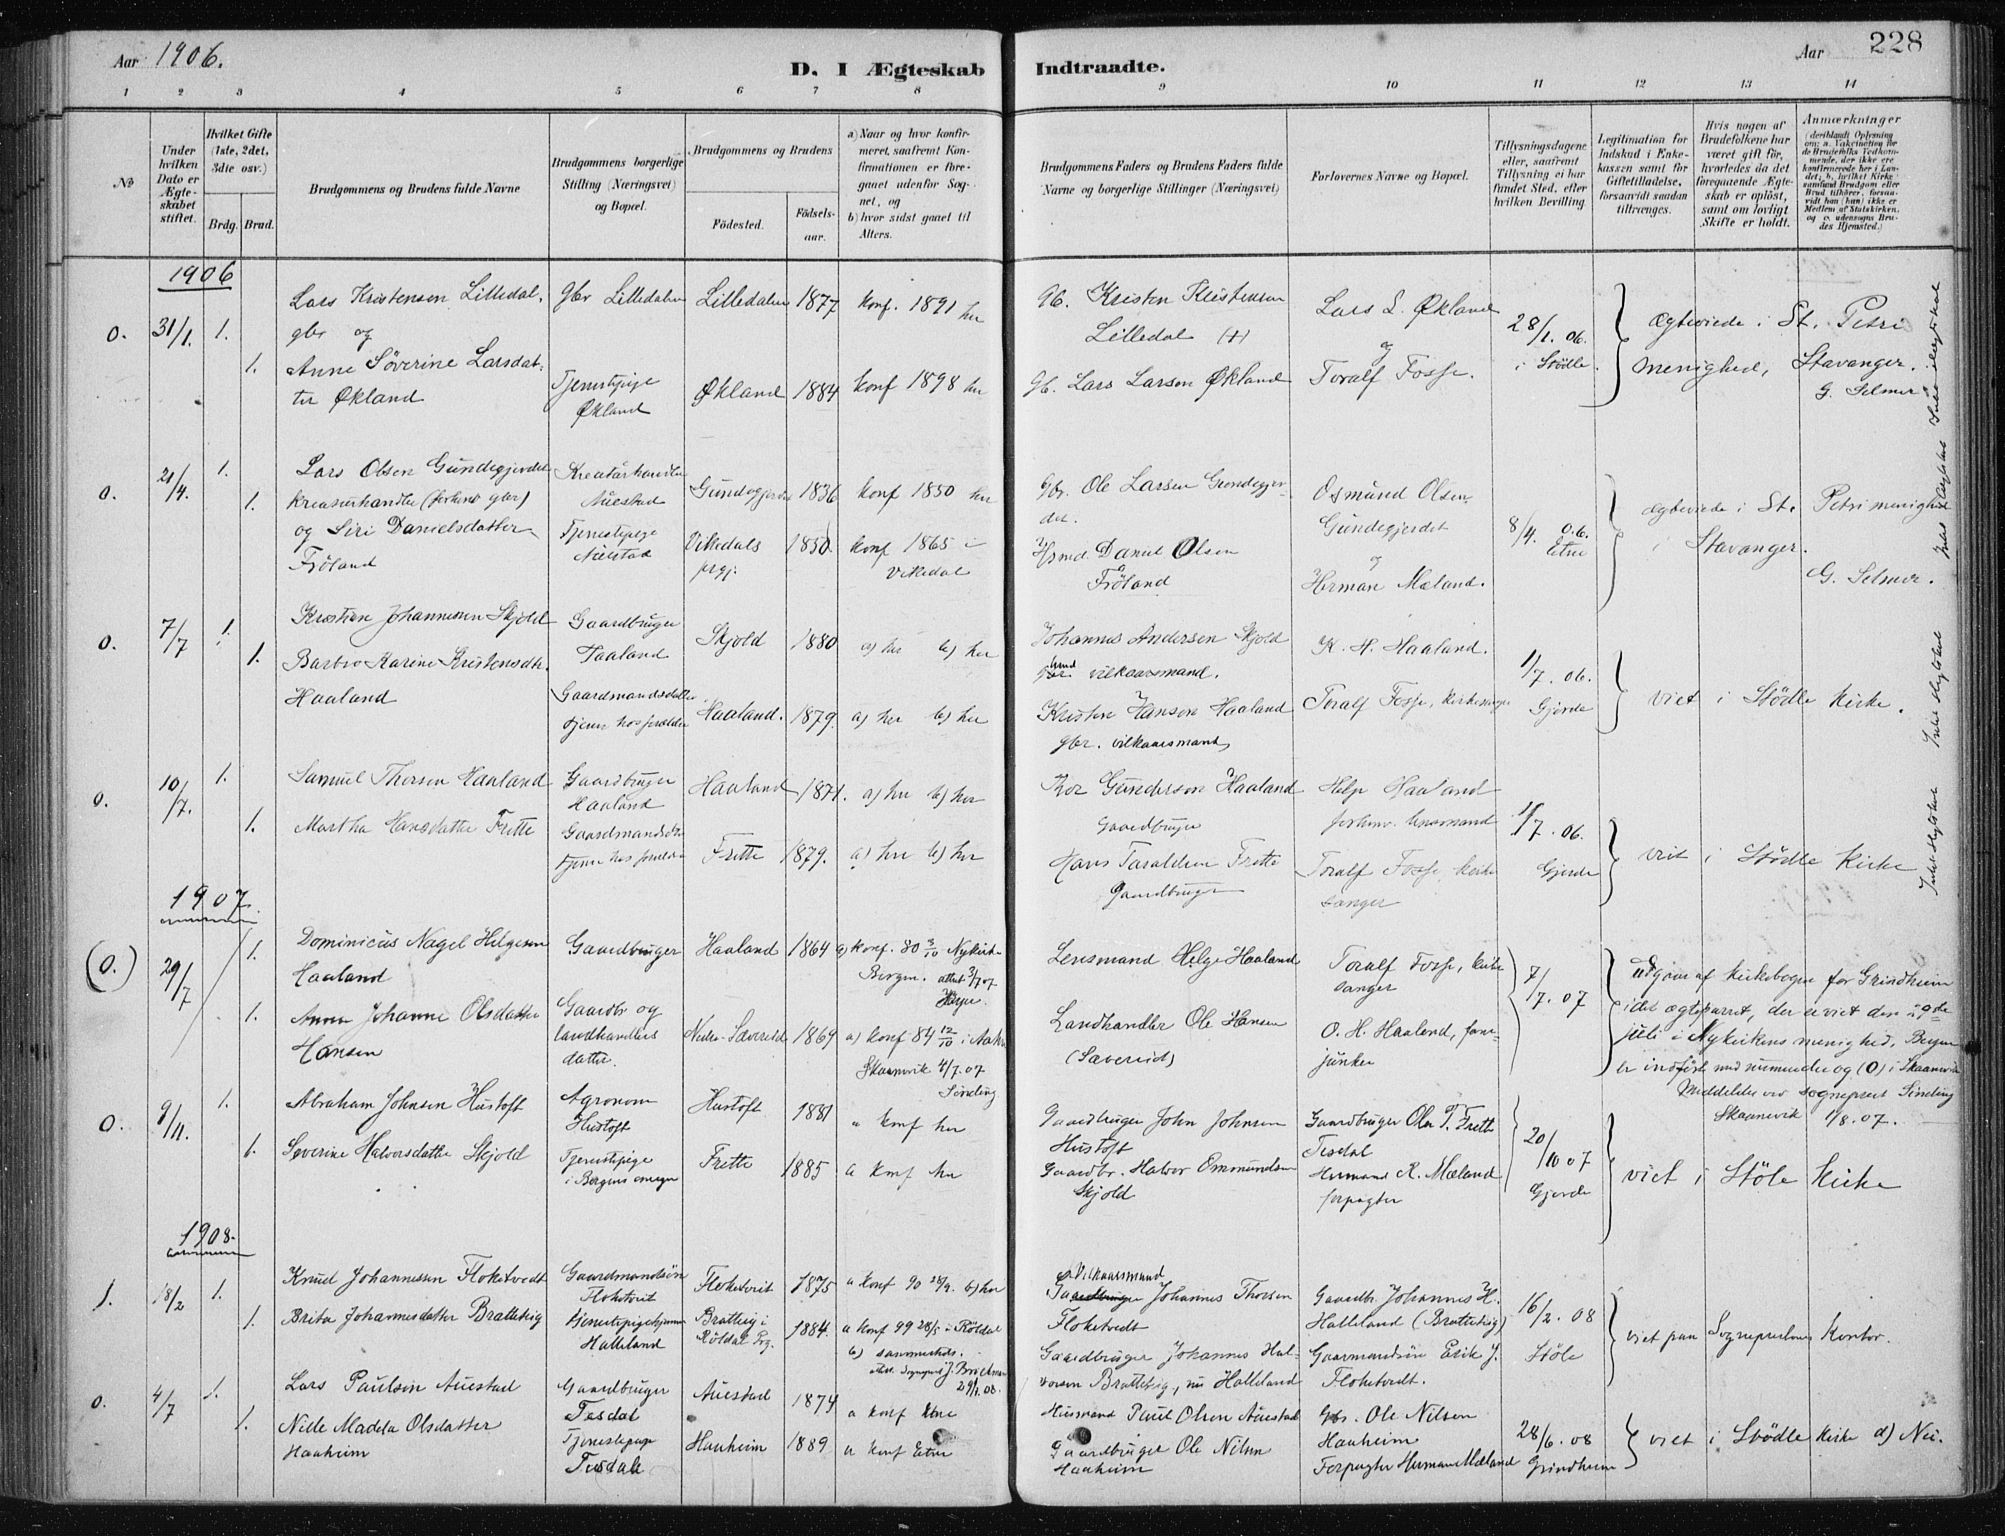 Aar 1906.
D. I Ægteskab Indtraadte.
Aar 228
1 2 3 4 5 6 7 8 9 10 11 12 13 14
No
Under hvilken Dato er Ægteskabet stiftet.
Hvilket Gifte (1ste, 2det, 3die osv.)
Brdg. Brud.
Brudgommens og Brudens fulde Navne
Brudgommens borgerlige Stilling (Næringsvei) og Bopæl.
Brudgommens og Brudens
Fødested.
Fødselsaar.
a) Naar og hvor konfirmeret, saafremt Konfirmationen er foregaaet udenfor Sognet, og
b) hvor sidst gaaet til Alters.
Brudgommens Faders og Brudens Faders fulde Navne og borgerlige Stillinger (Næringsvei)
Forlovernes Navne og Bopæl.
Tillysningsdagene eller, saafremt Tillysning ei har fundet Sted, efter hvilken Bevilling
Legitimation for Indskud i Enkekassen samt for Giftetilladelse, forsaavidt saadan tiltrænges.
Hvis nogen af Brudefolkene har været gift før, hvorledes da det foregaaende Ægteskab er opløst, samt om lovligt Skifte er holdt.
Anmærkninger
(deriblandt Oplysning om: a. Vaccination for de Brudefolks Vedkommende, der ikke ere konfirmerede her i Landet; b. hvilket Kirkesamfund Brudgom eller Brud tilhører, forsaavidt han (hun) ikke er Medlem af Statskirken, og c. udensogns Brudes Hjemsted.)
1906
0. 31/1. 1. Lars Kristensen Lilledal, gbr Lilledalen Lilledalen 1877 konf. 1891 her
gbr og
1. Anne Söverine Larsdatter Økland Tjenestepige Økland Økland 1884 konf 1898 her
Gb. Kristen Kristensen Lilledal (+)
Gb. Lars Larsen Økland
Lars L. Økland
og
Toralf Fosse.
28/1. 06. i Stödle.
ægteviede i St. Petri
menighed, Stavanger.
G. Selmer
0. 21/4. 1. Lars Olsen Gundegjerdet Kreaturhandler Auestad Gundegjerde 1836 konf 1850 her
1. kreaturhandler (forhen gbr)
og Siri Danielsdatter Fröland Tjenestepige Vikedals prgj. 1850. konf 1865 i Vikedal
Gbr. Ole Larsen Gundegjerdet.
Hsmd. Daniel Olsen Fröland
Osmund Olsen Gundegjerdet
og
Herman Mæland.
8/4. 06. Etne
ægteviede i St. Petri menighed
i Stavanger.
G. Selmer.
0. 7/7 1. Kristian Johannessen Skjold Gaardbruger Haaland Skjold 1880 a) her b) her
1. Barbro Karine Kristensdtr. Haaland Gaardmandsdatter tjener hos forældre Haaland. 1879. a) her b) her
Johannes Andersen Skjold
vilkaarsmand.
Kristen Hanson Haaland
gbr. vilkaarsmand
K. H. Haaland.
Toralf Fosse, kirkesanger
1/7. 06. Gjerde
viet i Stödle kirke.
0. 10/7. 1. Samuel Thorsen Haaland Gaardbruger Haaland Haaland 1871. a) her b) her
1. Martha Hansdatter Frette Gaardmandsdtr tjener hos forældre Frette 1879. a) her b) her
Gunderson Haaland
Gaardbruger
Hans Taraldsen Frette
Gaardbruger
Helge Haaland
forhenv. lensmand
Toralf Fosse, kirkesanger
1/7. 06. Gjerde
viet i Stödle kirke
1907.
(0.) 29/7 1. Dominicus Nagel Helgesen Haaland Gaardbruger Haaland 1864 a) konf. 80 3/10 Nykirk Bergen. attest 3/7 07
1. Anna Johanne Olsdatter Hansen Gaardbr og landhandlers datter. Nedre-Sævereide 1869 a) konf 84 12/10 i
Skaanevik 4/7. 07
Sinding
Lensmand Helge Haaland
Landhandler Ole Hansen
(Sævereid)
Toralf Fosse, kirkesanger
O. H. Haaland,
7/7. 07
udgaar af kirkebogen for Grindheim
idet ægteparret, der er viet den 29de
juli i Nykirkens menighed, Bergen
er indført med nummer og (0) i Skaanevik
Meddelelse ved sogneprest Sinding
Skaanevik 1/8. 07.
0. 9/11. 1. Abraham Johnsen Hustoft Agronom Hustoft Hustoft 1881 a konf her
1. Severine Halvorsdatter Skjold Tjenestepige i Bergens omegn Frette 1885 a konf her
Gaardbruger John Johnsen Hustoft
Gaardbr. Halvor Emmundsen Skjold
Gaardbruger Ola T. Frette
Tesdal
Hermand K. Mæland
forpagter
20/10 07 Gjerde
viet i Stöle Kirke
1908.
1. 18/2 1. Knud Johannessen Floketvedt Gaardmandsön Floketveit Floketveit 1875 a konf 90 28/9. b) her
1. Brita Johannesdatter Bratteteig tjenestepige hjemme Halleland Bratteig i Röldal Prg. 1884. a konf 99 28/5 i Röldal
b) sammesteds.
29/1. 08.
Vilkaarsmand
Johannes Thorsen Floketvedt
Gaardbruger Johannes Halvorsen Bratteteig, nu Halleland
Gaardbr. Johannes H. Halleland (Bratteteig)
Gaarmandsön Erik J. Floketvedt.
16/2. 08 Stöle
viet paa Sogneprestens Kontor.
0. 4/7 1. Lars Paulsen Auestad Gaardbruger Tesdal Auestad 1874 a konf Etne
1. Nille Madela Olsdatter Haaheim Tjenestepige Tesdale Haaheim 1889 a konf Etne
Husmand Paul Olsen Auestad
Gaardbruger Ole Nilsen Haaheim
Gbr. Ole Nilsen Haaheim
Forpagter Herman Mæland
28/6. 08 Grindheim
viet i Stödle kirke d) Nei.